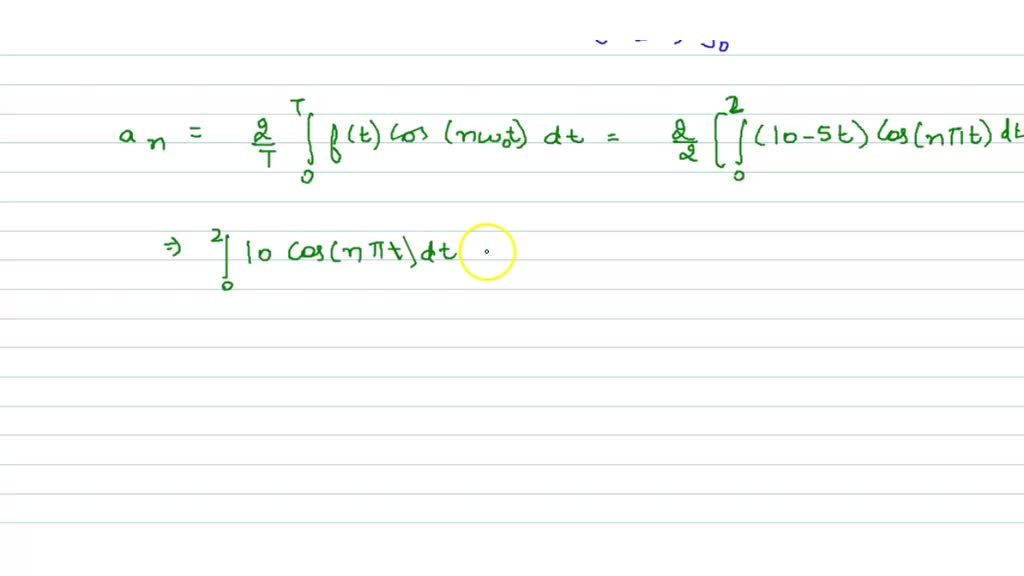 a_n = 2/T ∫_0^T f(t) cos (nω₀t) dt = 2/2 [∫_0^2 (10-5t) cos(nπt) dt
⇒ ∫_0^2 10 cos(nπt) dt